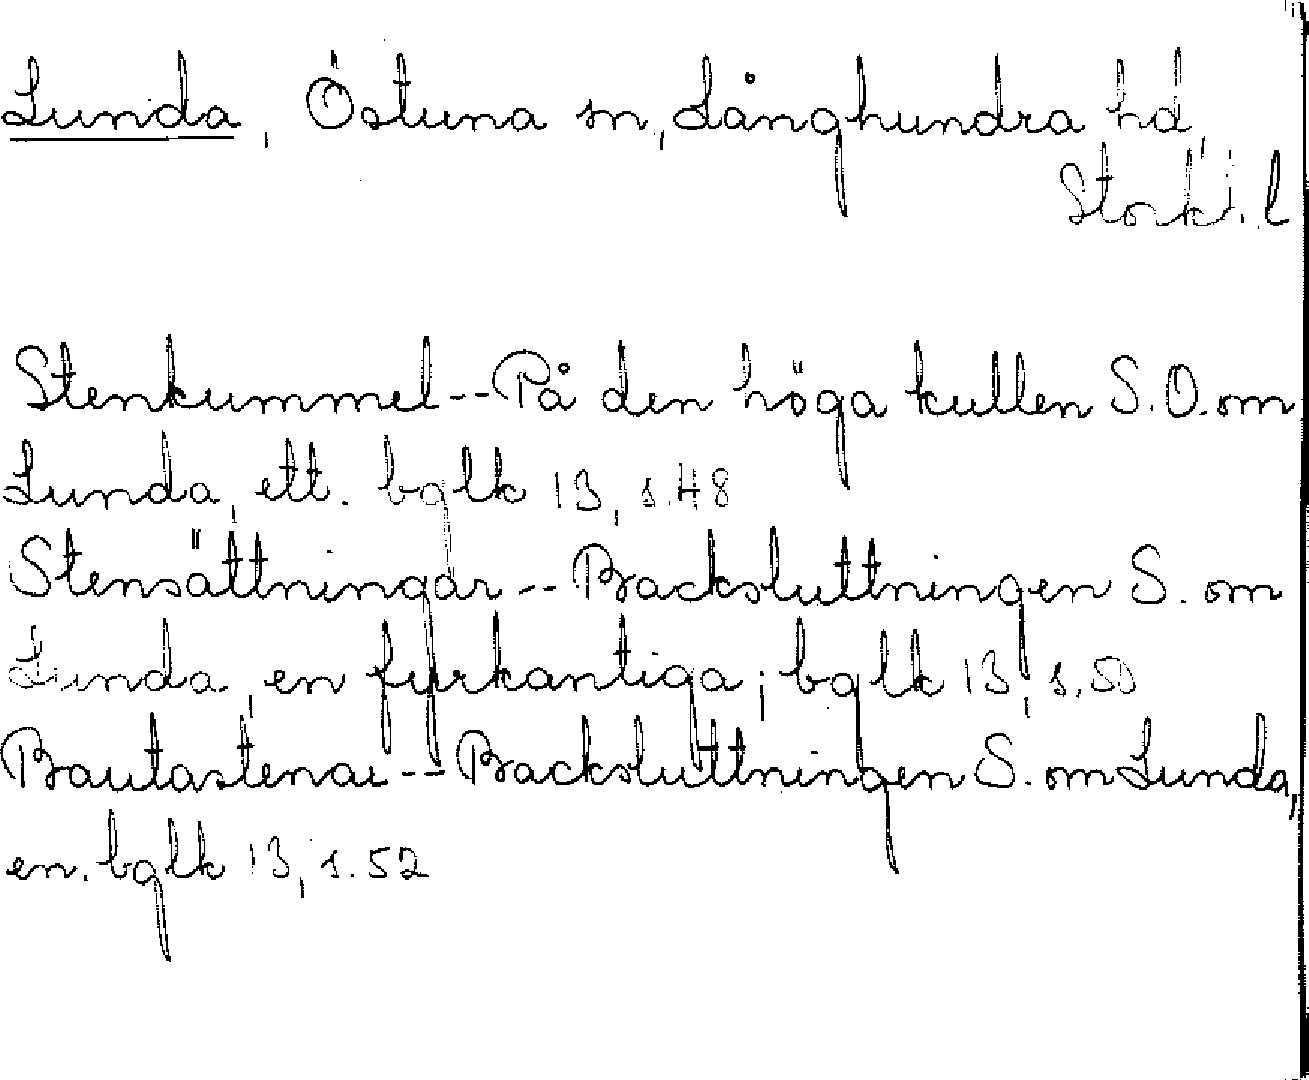 Lunda, Östuna sn, Långhundra hd,
Stork. l
Stenkummel -- På den höga kullen S.O. om
Lunda, ett. bglk 13, s. 48
Stensättningar -- Backsluttningen S. om
Lunda, en fyrkantiga; bglk 13, s. 50
Bautastenar -- Backsluttningen S. om Lunda,
en. bglk 13, s. 52